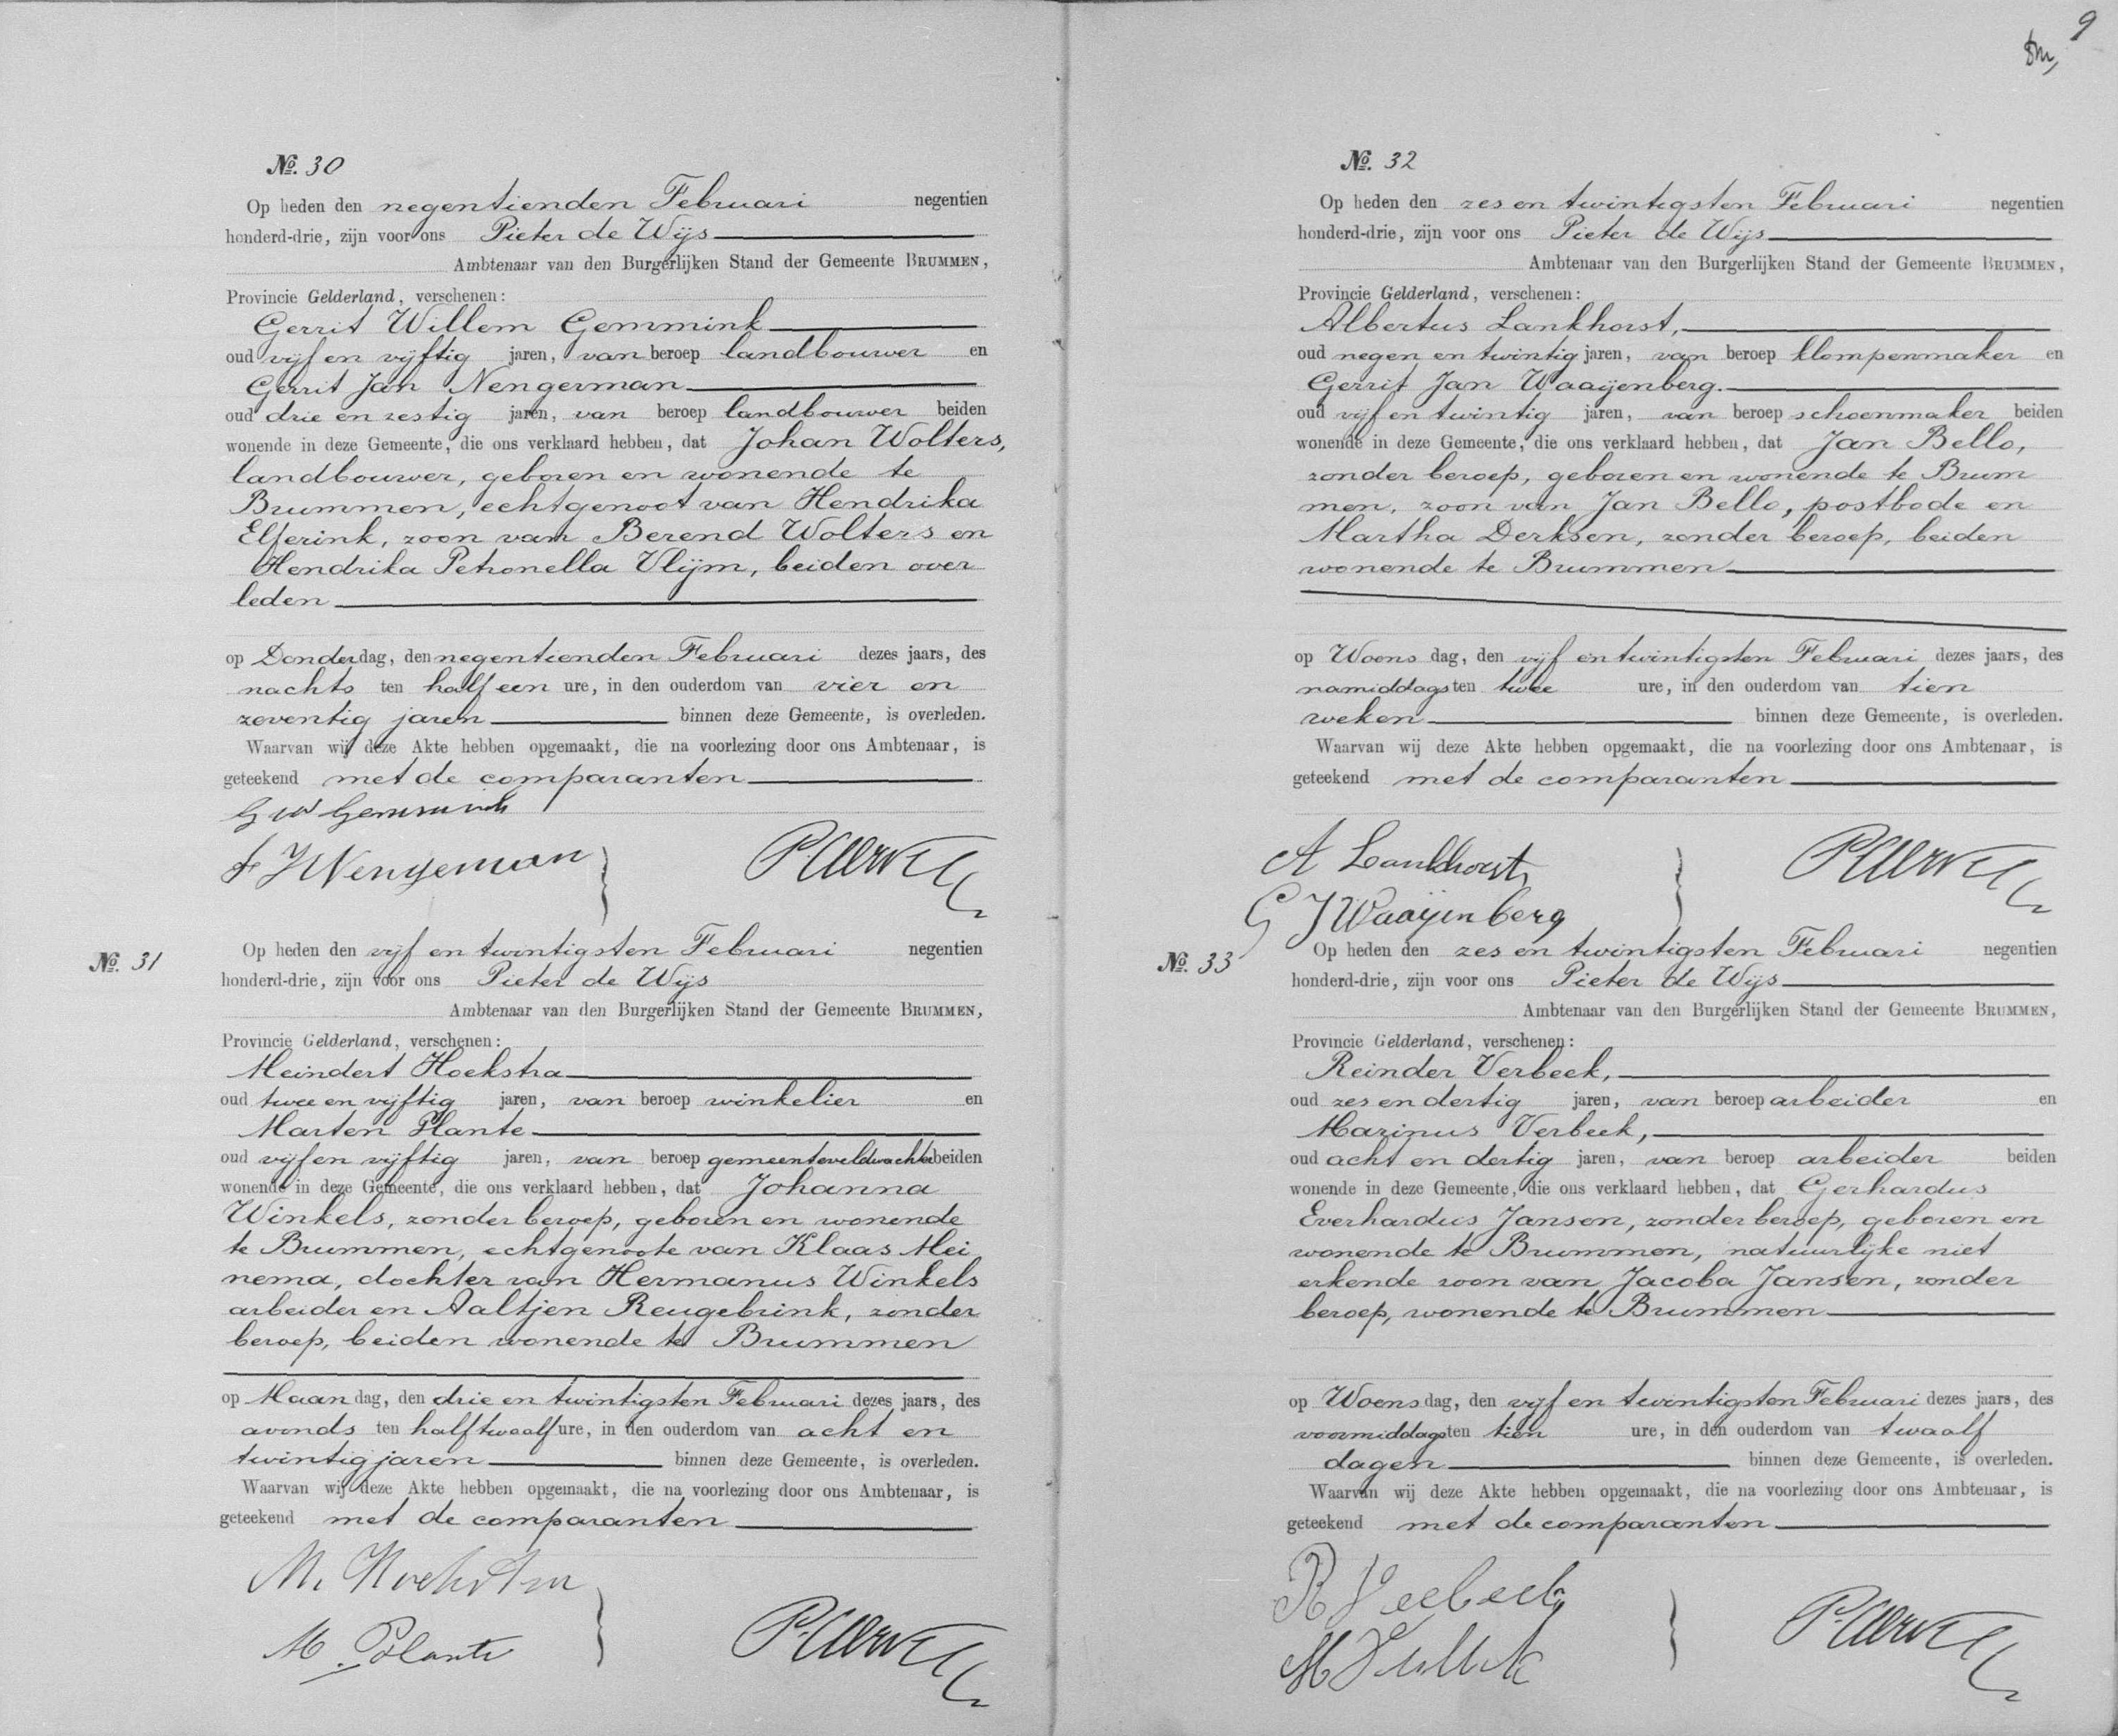 No. 30
Op heden den negentienden Februari negentien
honderd-drie, zijn voor ons Pieter de Wijs
Ambtenaar van den Burgerlijken Stand der Gemeente BRUMMEN,
Provincie Gelderland, verschenen:
Gerrit Willem Gemmink
oud vijf en vijftig jaren, van beroep landbouwer en
Gerrit Jan Nengerman
oud drie en zestig jaren, van beroep landbouwer beiden
wonende in deze Gemeente, die ons verklaard hebben, dat Johan Wolters,
landbouwer, geboren en wonende te
Brummen, echtgenoot van Hendrika
Elferink, zoon van Berend Wolters en
Hendrika Petronella Vlijm, beiden over
leden
op Donderdag, den negentienden Februari dezes jaars, des
nachts ten half een ure, in den ouderdom van vier en
zeventig jaren binnen deze Gemeente, is overleden.
Waarvan wij deze Akte hebben opgemaakt, die na voorlezing door ons Ambtenaar, is
geteekend met de comparanten
G W Gemmink
J Nengeman
No. 31
Op heden den vijf en twintigsten Februari negentien
honderd-drie, zijn voor ons Pieter de Wijs
Ambtenaar van den Burgerlijken Stand der Gemeente BRUMMEN,
Provincie Gelderland, verschenen:
Meindert Hoekstra
oud twee en vijftig jaren, van beroep winkelier en
Marten Plante
oud vijf en vijftig jaren, van beroep gemeenteveldwachter beiden
wonende in deze Gemeente, die ons verklaard hebben, dat Johanna
Winkels, zonder beroep, geboren en wonende
te Brummen, echtgenoote van Klaas Mei
nema, dochter van Hermanus Winkels
arbeider en Aaltjen Reugebrink, zonder
beroep, beiden wonende te Brummen
op Maandag, den drie en twintigsten Februari dezes jaars, des
avonds ten half twaalf ure, in den ouderdom van acht en
twintig jaren binnen deze Gemeente, is overleden.
Waarvan wij deze Akte hebben opgemaakt, die na voorlezing door ons Ambtenaar, is
geteekend met de comparanten
M. Hoekstra
M. Plante
9
No. 32
Op heden den zes en twintigsten Februari negentien
honderd-drie, zijn voor ons Pieter de Wijs
Ambtenaar van den Burgerlijken Stand der Gemeente BRUMMEN,
Provincie Gelderland, verschenen:
Albertus Lankhorst,
oud negen en twintig jaren, van beroep klompenmaker en
Gerrit Jan Waaijenberg.
oud vijf en twintig jaren, van beroep schoenmaker beiden
wonende in deze Gemeente, die ons verklaard hebben, dat Jan Bello,
zonder beroep, geboren en wonende te Brum
men, zoon van Jan Bello, postbode en
Martha Derksen, zonder beroep, beiden
wonende te Brummen
op Woensdag, den vijf en twintigsten Februari dezes jaars, des
namiddags ten twee ure, in den ouderdom van tien
weken binnen deze Gemeente, is overleden.
Waarvan wij deze Akte hebben opgemaakt, die na voorlezing door ons Ambtenaar, is
geteekend met de comparanten
A Lankhorst
G J Waaijenberg
No. 33
Op heden den zes en twintigsten Februari negentien
honderd-drie, zijn voor ons Pieter de Wijs
Ambtenaar van den Burgerlijken Stand der Gemeente BRUMMEN,
Provincie Gelderland, verschenen:
Reinder Verbeek,
oud zes en dertig jaren, van beroep arbeider en
Marinus Verbeek,
oud acht en dertig jaren, van beroep arbeider beiden
wonende in deze Gemeente, die ons verklaard hebben, dat Gerhardus
Everhardus Jansen, zonder beroep, geboren en
wonende te Brummen, natuurlijke niet
erkende zoon van Jacoba Jansen, zonder
beroep, wonende te Brummen
op Woensdag, den vijf en twintigsten Februari dezes jaars, des
voormiddags ten tien ure, in den ouderdom van twaalf
dagen binnen deze Gemeente, is overleden.
Waarvan wij deze Akte hebben opgemaakt, die na voorlezing door ons Ambtenaar, is
geteekend met de comparanten
R Verbeek
M Verbeek